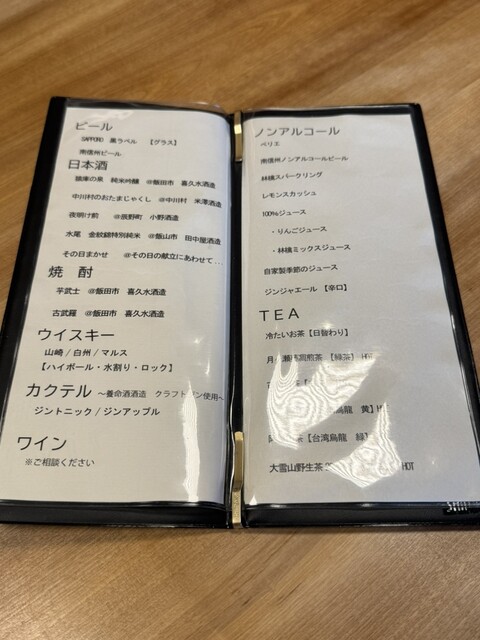 ビール
黒ラベル 【グラス】
南信州ビール
日本酒
猿庫の泉 純米吟醸 @飯田市 喜久水酒造
中川村のおたまじゃくし @中川村 米澤酒造
夜明け前 @辰野町 小野酒造
水尾 金紋錦特別純米 @飯山市 田中屋酒造
その日まかせ @その日の献立にあわせて...
焼 酎
平武士 @飯田市 喜久水酒造
古武羅 @飯田市 喜久水酒造
ウイスキー
山崎/白州/マルス
【ハイボール・水割り・ロック】
カクテル ～養命酒酒造 クラフトジン使用～
ジントニック/ジンアップル
ワイン
※ご相談ください
ノンアルコール
ペリエ
南信州ノンアルコールビール
林檎スパークリング
レモンスカッシュ
100%ジュース
・りんごジュース
・林檎ミックスジュース
自家製季節のジュース
ジンジャエール 【辛口】
TEA
冷たいお茶【日替わり】
月ヶ瀬 煎茶 【緑茶】 HOT
烏龍 黄】
茶【台湾烏龍 緑】
大雪山野生茶 HOT